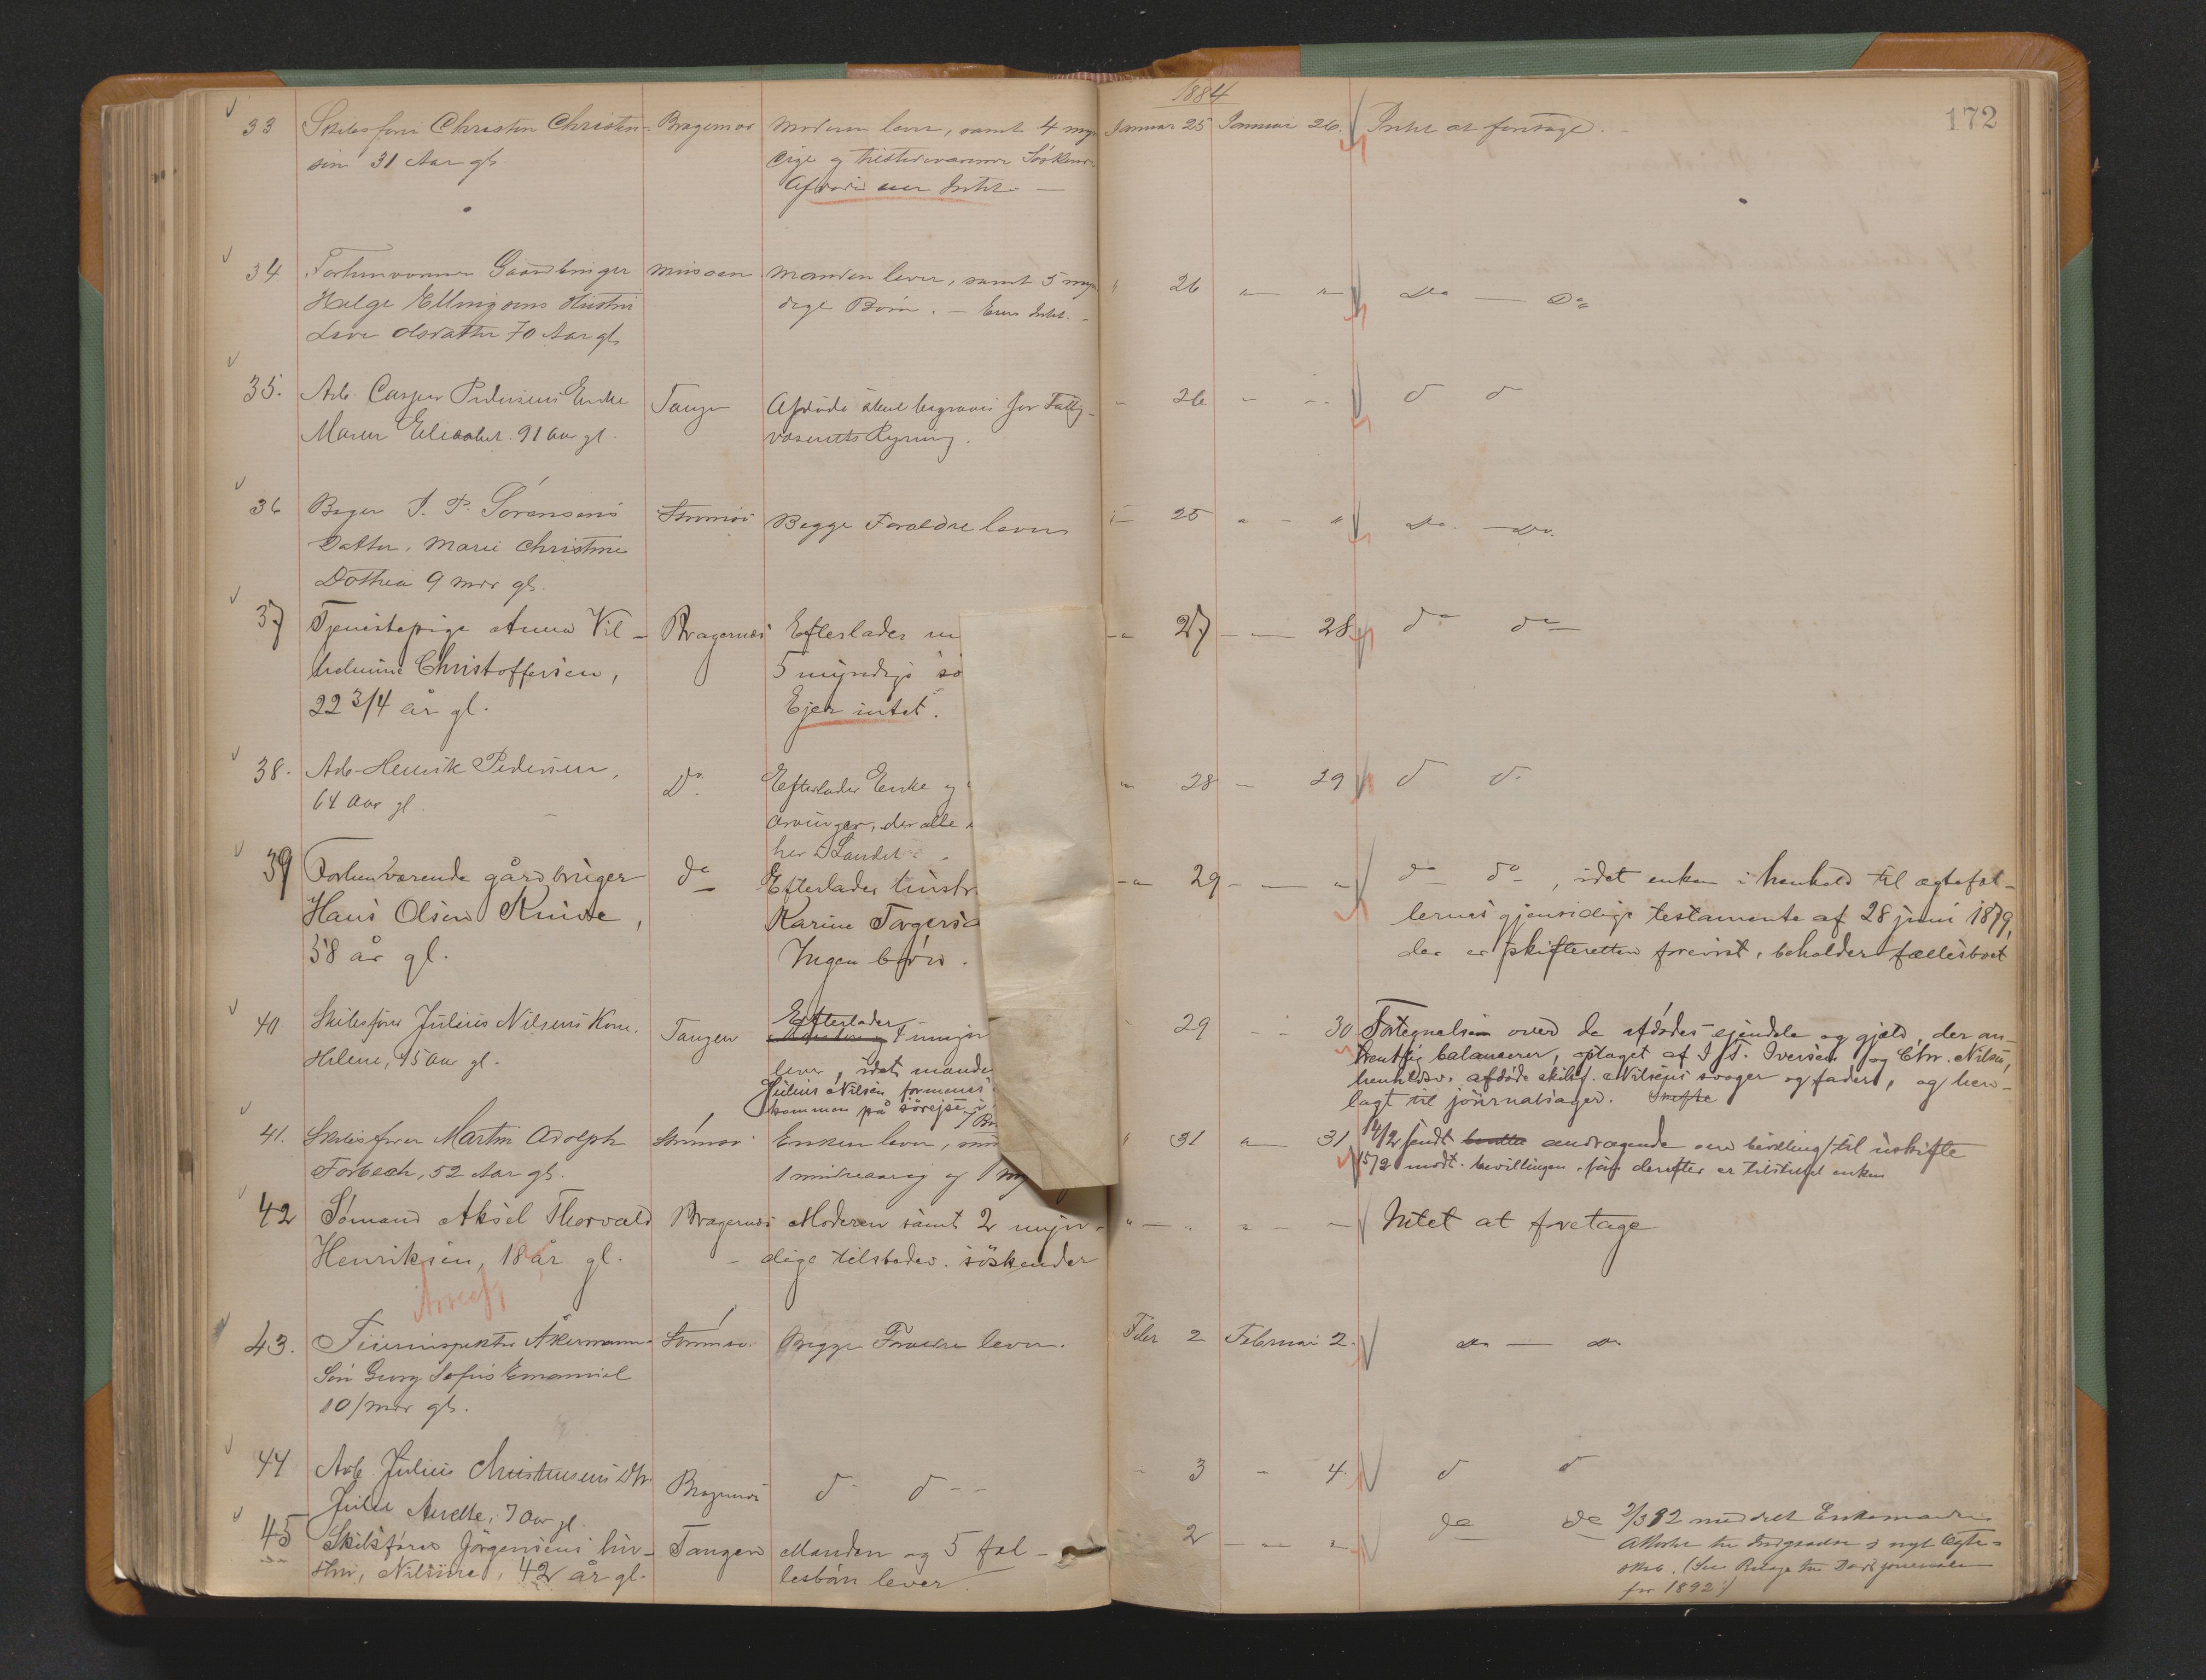 1884
172
33 Skibsfører Christen Christen- Bragernæs Moderen lever, samt 4 myn Januar 25 Januar 26. Intet at foretage.
sen 31 Aar gl. dige og tilstedeværende Søskende
Afdøde eier Intet
34 Forhenværende Gaardbruger Manden lever, samt 5 myn " 26 " " Do Do
Helge Ellingsens Hustru dige Børn. - Eier Intet.
Live Olsdatter 70 Aar gl.
35. Arb. Casper Pedersens Enke Tangen Afdøde skal begraves for Fattig- " 26 - - d d
Maren Elisabet. 91 Aar gl. væsenets Regning.
36 Bager P. Sørensens Strømsø Begge Forældre lever 25 " " Do. Do.
Datter, Marie Christine
Dothea 9 mdr gl.
37 Tjenestepige Anna Vil- Bragernæs Efterlader 27 28 do do
helmine Christoffersen, 5 myndige sø
22 3/4 år gl. Ejer intet.
38. Arb. Henrik Pedersen, Do. Efterlader Enke og " 28 - 29 d d
64 Aar gl. Arvinger, der alle
her i Landet
39 Forhenværende gårdbruger do Efterlader hustr 29 " do do, idet enken i henhold til ægtefæl-
Hans Olsen Knive, Karine Torgersd lernes gjensidige testamente af 28 juni 1879,
58 år gl. Ingen børn. der er skifteretten forevist, beholder fællesboet
40 Skibsfører Julius Nilsens Kone Tangen Efterlader 4 umyn 29 30 Fortegnelse over de afdødes ejendele og gjæld, der om-
Helene, 45 Aar gl. lever, idet mande trentlig balancerer, optaget af I. T. Iversen og Chr. Nilsen,
Julius Nilsen formenes henholdsv. afdøde skibsf. Nilsens svoger og fader, og hen-
kommen på sørejse i lagt til journalsager.
41. Skibsfører Martin Adolph Strømsø Enken lever, 31 31 14/2 sendt andragende om bevilling til uskifte
Forbech, 52 Aar gl. 1 mindreaarig og 1 my 15/2 modt. bevillingen, som derefter er tilstillet enken
42 Sømand Aksel Thorvald Bragernæs Moderen samt 2 myn- Intet at foretage
Henriksen, 18 år gl. dige tilstedev. søskender
43. Åkermanns Strømsø Begge Forældre lever. Febr 2 Februar 2. do do
Søn Georg Sofus Emanuel
10/mdr gl.
44 Arb. Julius Christensens Dtr. Bragernæs d d - 3 - 4. d d
Julie Amelie, 7 Aar gl.
45 Skibsfører Jørgensens hu- Tangen Manden og 5 fæl- 2 do do 2/3 92 meddelt Enkemanden
stru, Nilsine, 42 år gl. lesbørn lever. Attest til Indgaaelse af nyt Ægte-
skab. (Se Bilage til Dødsjournalen
for 1892)